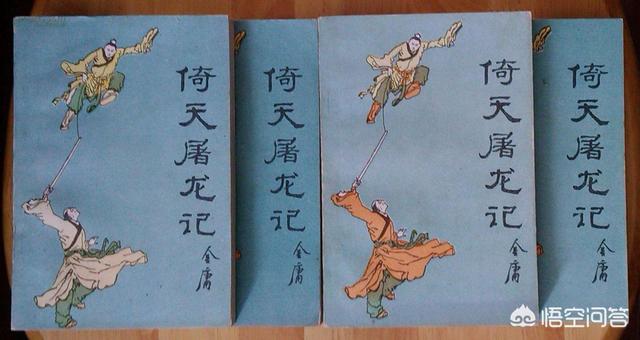 倚天屠龙记
金庸
倚天屠龙记
金庸
倚天屠龙记
金庸
倚天屠龙记
金庸
悟空问答